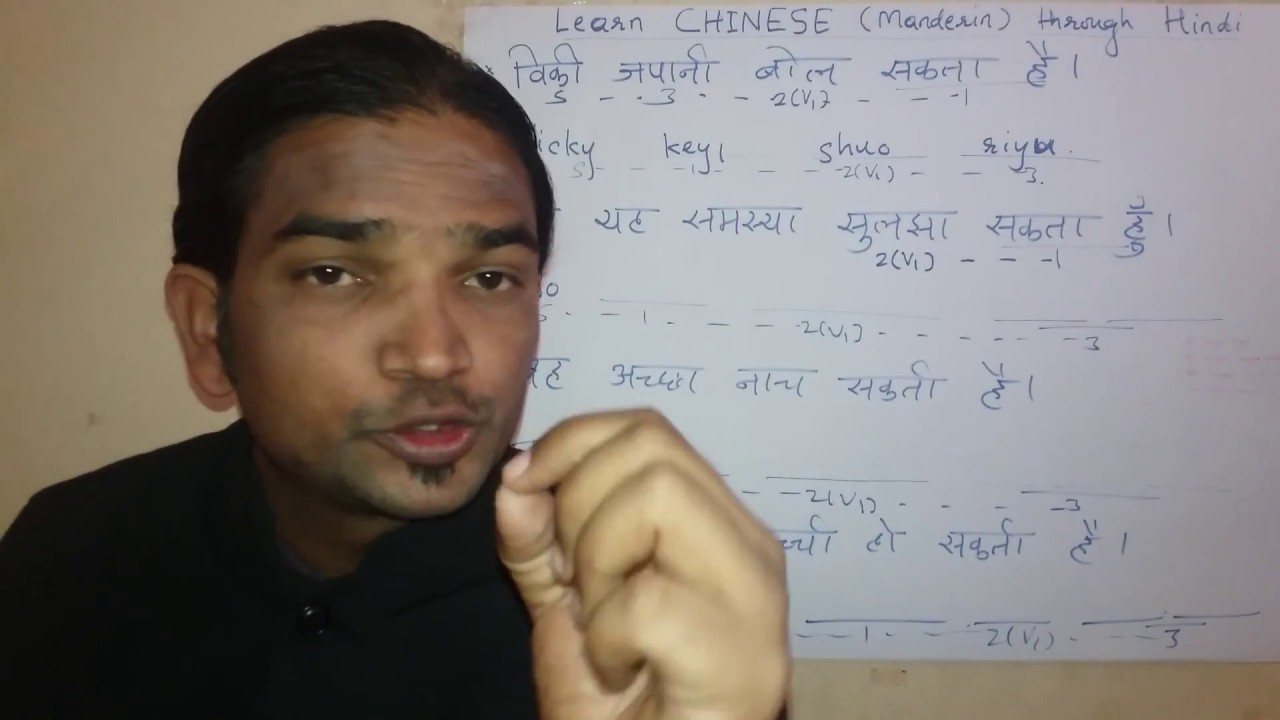 Learn CHINESE (Manderin) through Hindi
विकी जपानी बोल सकता है।
S - - 3 - - 2(V1) - - -1
icky key, shuo riyu.
S - - -1 - - -2(V1) - - 3.
यह समस्या सुलझा सकता हूँ।
2(V1) - - -1
- 1 - - - 2(V1) - - - - - -3
अच्छा नाच सकती है।
- -2(V1) - - - -3
हो सकती है।
- - 1 - - 2(V1) - - - 3